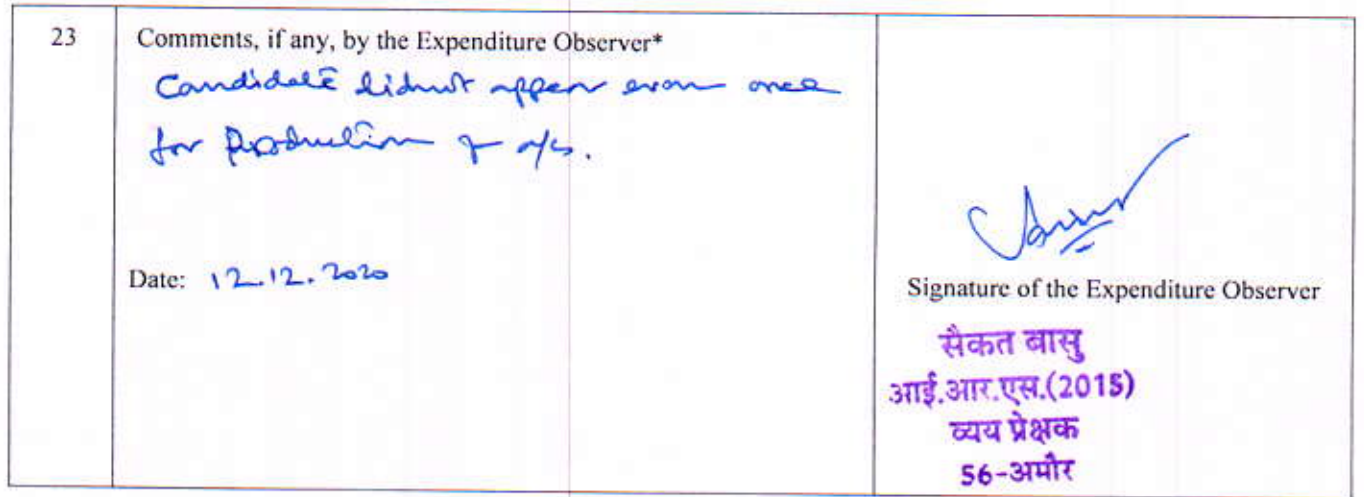 23
Comments, if any, by the Expenditure Observer*
Candidate didnot appear even once
for Production of a/cs.
Date: 12.12.2020
Signature of the Expenditure Observer
सैकत बासु
आई.आर.एस.(2015)
व्यय प्रेक्षक
56-अमौर